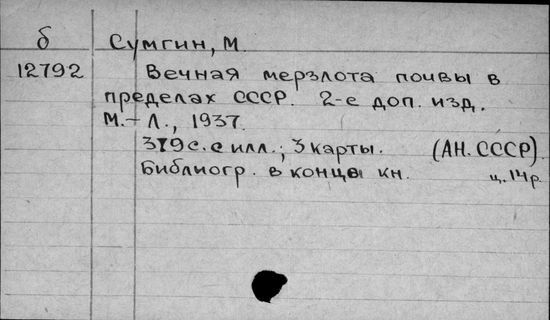 б Сумгин, М.
12792 Вечная мерзлота почвы в
пределах СССР. 2-е доп. изд.
М.-Л., 1937.
379 с. с илл.; 3 карты. (АН. СССР).
Библиогр. в конце кн. ц. 14 р.